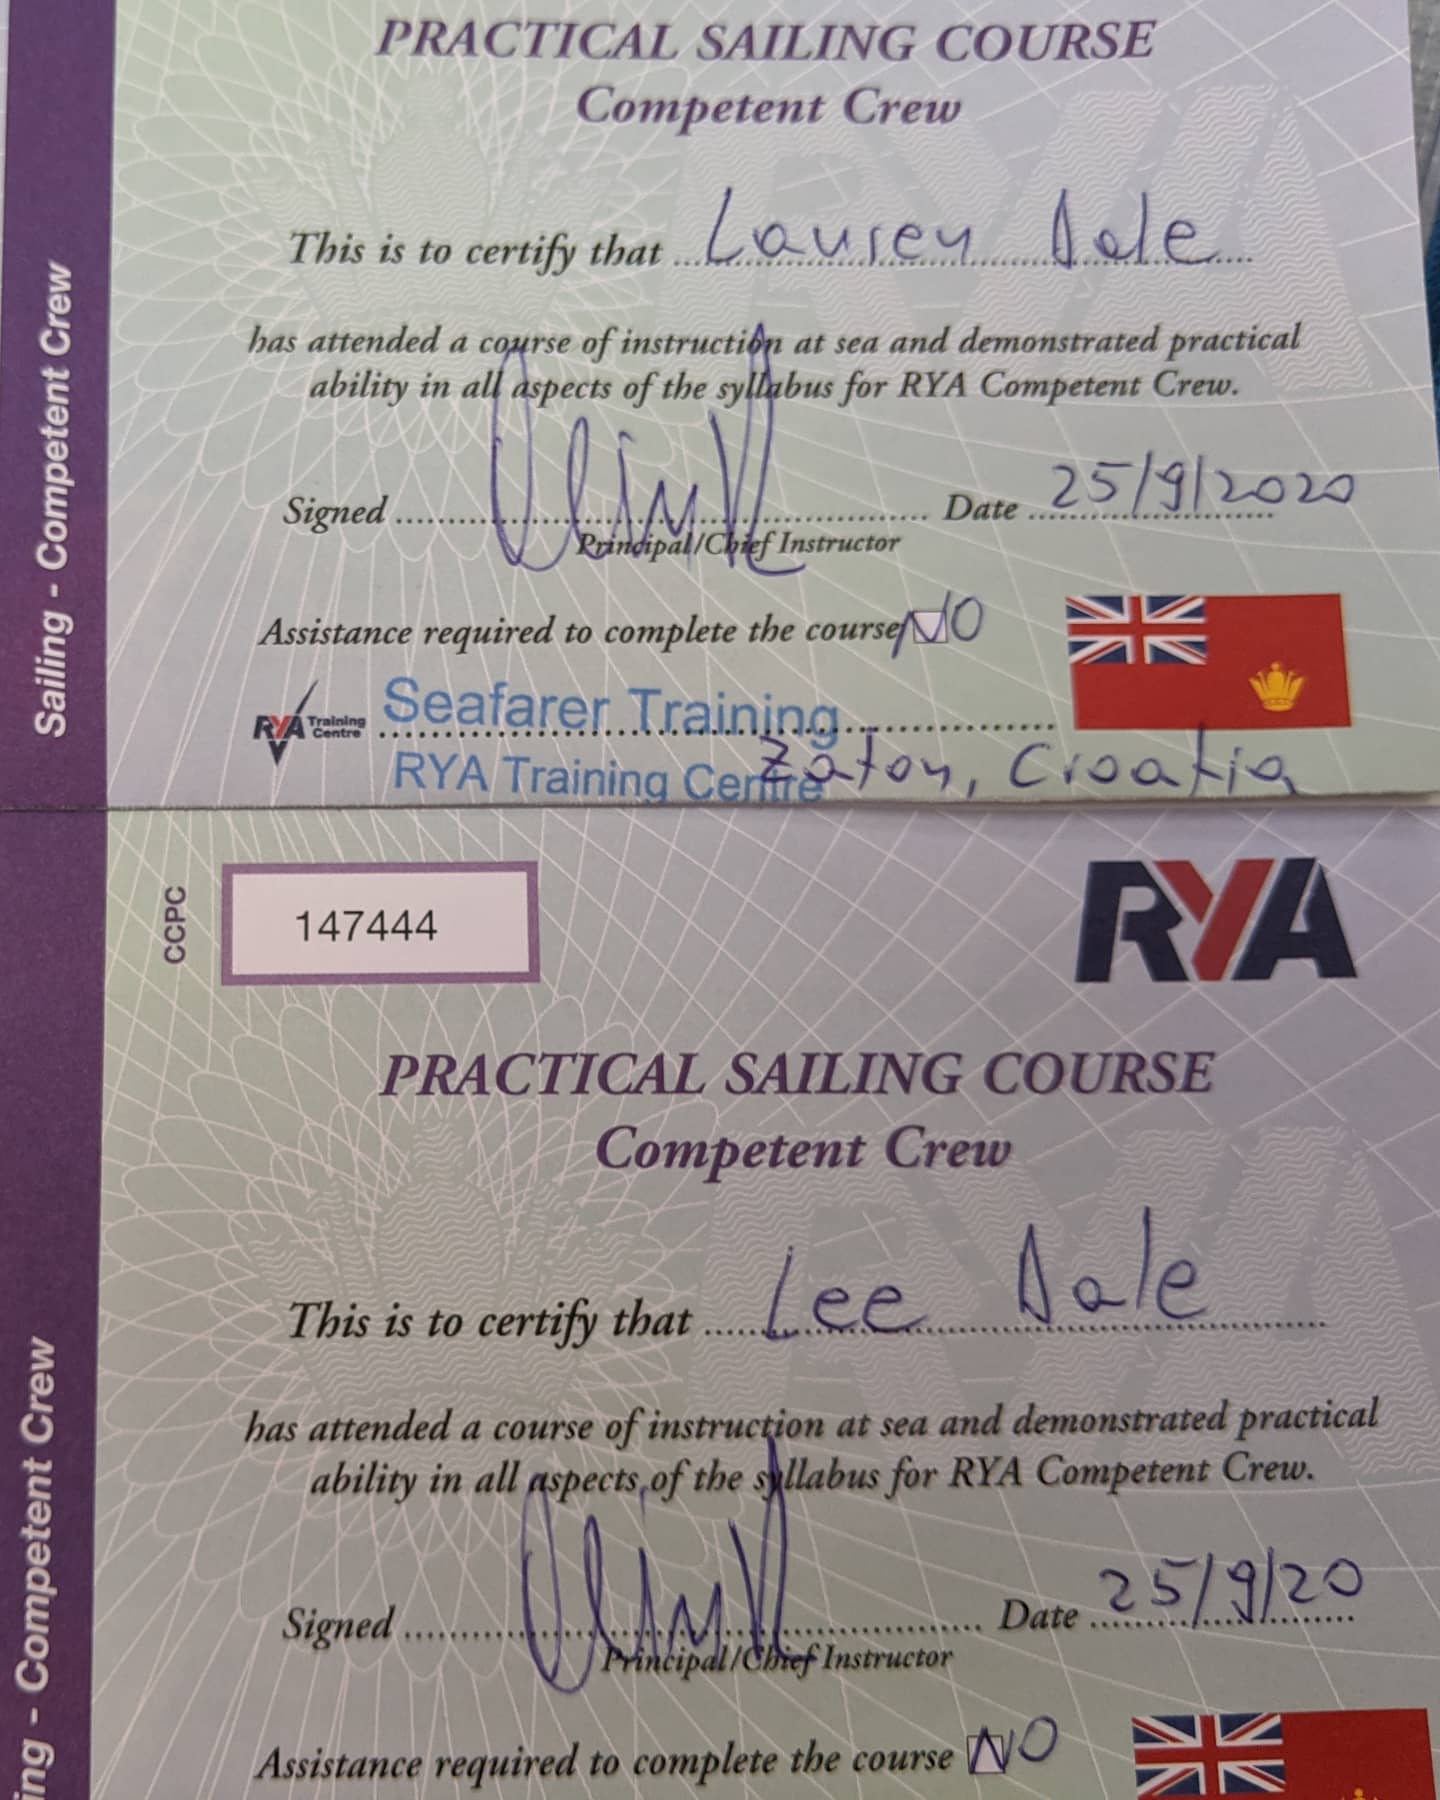 PRACTICAL SAILING COURSE
Competent Crew
This is to certify that Lauren Dale
has attended a course of instruction at sea and demonstrated practical
ability in all aspects of the syllabus for RYA Competent Crew.
Signed Date 25/9/2020
Principal/Chief Instructor
Assistance required to complete the course NO
RYA Training Centre Seafarer Training
RYA Training Centre Zaton, Croatia
Sailing - Competent Crew
CCPC 147444 RYA
PRACTICAL SAILING COURSE
Competent Crew
This is to certify that Lee Dale
has attended a course of instruction at sea and demonstrated practical
ability in all aspects of the syllabus for RYA Competent Crew.
Signed Date 25/9/20
Principal/Chief Instructor
Assistance required to complete the course NO
ing - Competent Crew